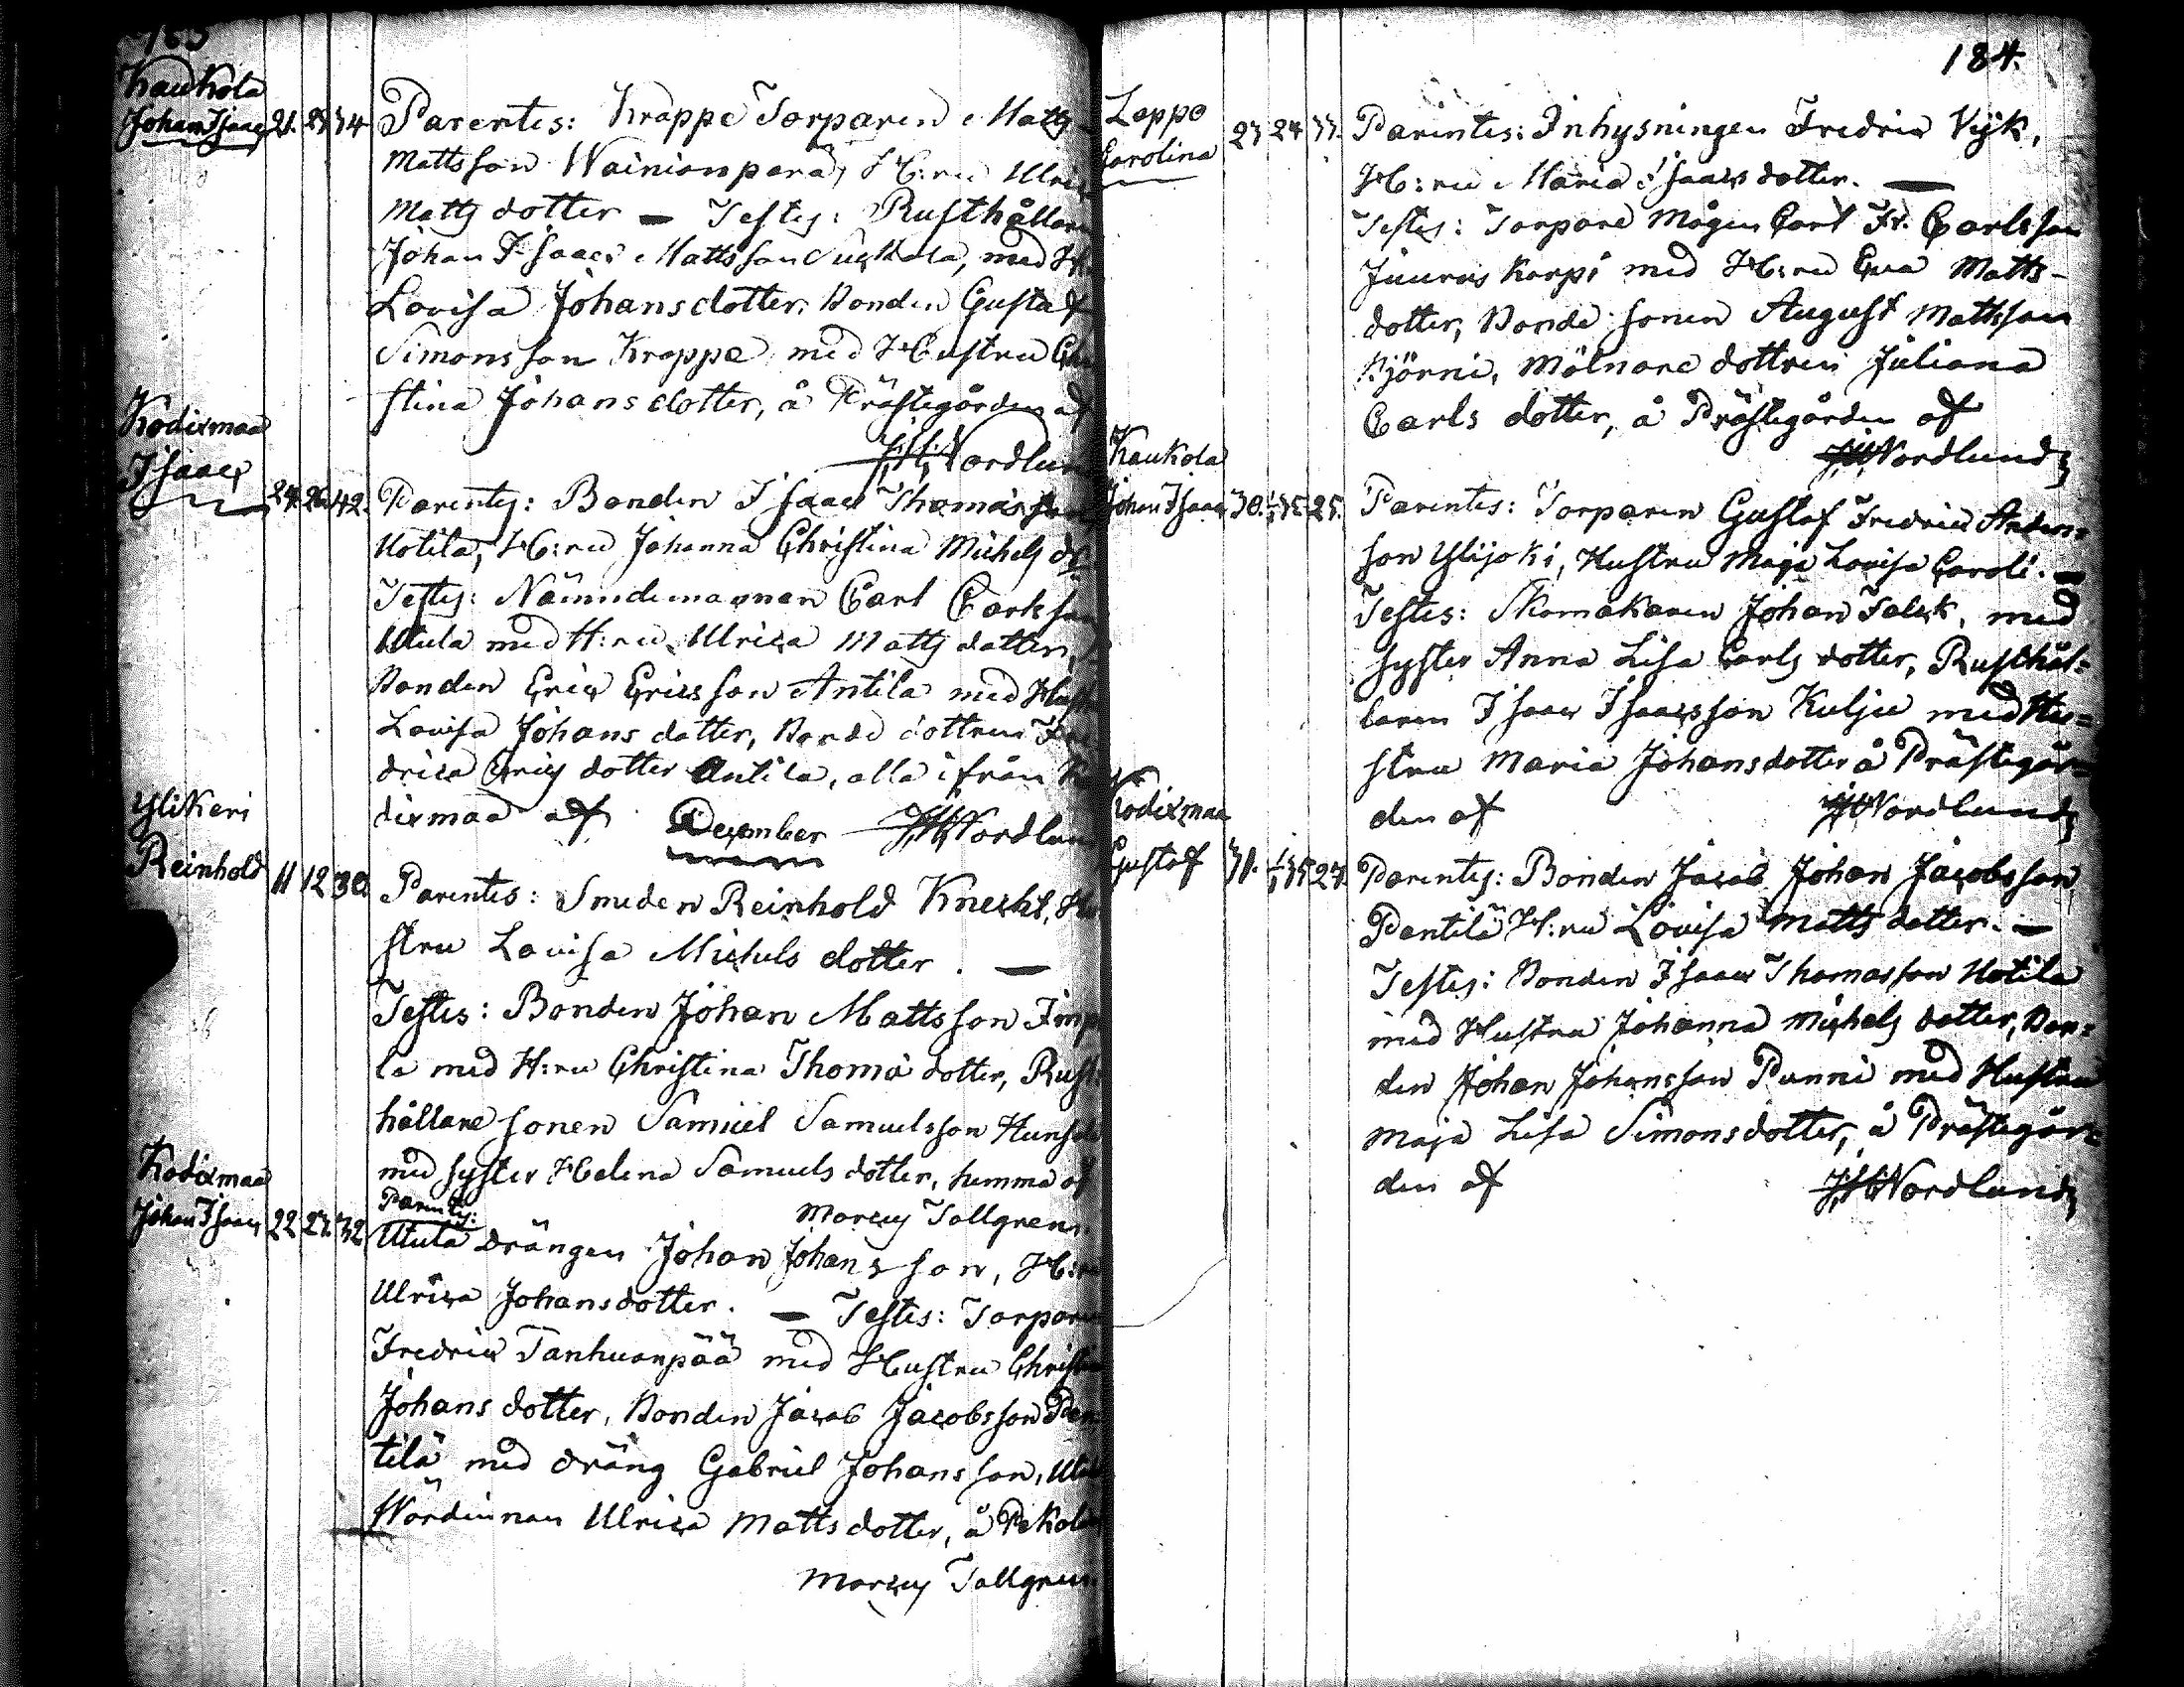 183
Kaukola
Johan Isaac 21. 23 34 Parentes: Krappe Torparen Matts
Mattsson Wainionpara, H:ru Ulrica
Matts dotter — Testes: Rusthållaren
Johan Isaac Mattsson Suckola, med H
Lovisa Johansdotter, Bonden Gustaf
Simonsson Krappe med Hustru Chri
stina Johansdotter, å Prästegården af
Nordlund
Kodixmaa
Isaac 24. 26. 42. Parentes: Bonden Isaac Thomasson
Uotila, H:ru Johanna Christina Michels dr
Testes: Nämndemannen Carl Carlsson
Utula med H:ru Ulrica Matts dotter,
Bonden Eric Ericsson Antila med Hustru
Lovisa Johans dotter, Bonde dottren Fre
drica Erics dotter Antila, alla ifrån Ko
dixmaa af Nordlund
December
Ylikeri
Reinhold 11 12 30. Parentes: Smeden Reinhold Knecht, Hu
stru Lovisa Michels dotter. —
Testes: Bonden Johan Mattsson Timp
la med H:ru Christina Thomä dotter, Rust
hållare sonen Samuel Samuelsson Hunsala
med syster Helena Samuels dotter, hemma af
Marcus Tallgren.
Kodixmaa
Johan Isaac 22 23. 32 Parentes:
Utula drängen Johan Johansson, H:ru
Ulrica Johansdotter. — Testes: Torparen
Fredric Tanhuanpää med Hustru Christina
Johans dotter, Bonden Jacob Jacobsson Pen
tilä med dräng Gabriel Johansson, Utula
Wärdinnan Ulrica Matts dotter, å Pekola
Marcus Tallgren.
184.
Leppo
Carolina 23 24 33. Parentes: Inhysningen Fredric Vijk,
H:ru Maria Isaacs dotter. —
Testes: Torpare Mågen Carl Fr. Carlsson
Juuros Korpi med H:ru Eva Matts-
dotter, Bonde sonen August Mattsson
Björni, Mölnare dottren Juliana
Carls dotter, å Prästegården af
Nordlund
Kaukola
Johan Isaac 30. 1/1 35. 25. Parentes: Torparen Gustaf Fredric Anders=
son Ylijoki, Hustru Maja Lovisa Caroli. —
Testes: Skomakaren Johan Falck, med
syster Anna Lisa Carls dotter, Rusthål=
laren Isaac Isaacsson Kulju med Hu=
stru Maria Johansdotter å Prästegår=
den af Nordlund
Kodixmaa
Gustaf 31. 1/1 35 27. Parentes: Bonden Jacob Johan Jacobsson
Pentilä H:ru Lovisa Matts dotter. —
Testes: Bonden Isaac Thomasson Uotila
med Hustru Johanna Michels dotter, Bon=
den Johan Johansson Punni med Hustru
Maja Lisa Simonsdotter, å Prästegår=
den af Nordlund